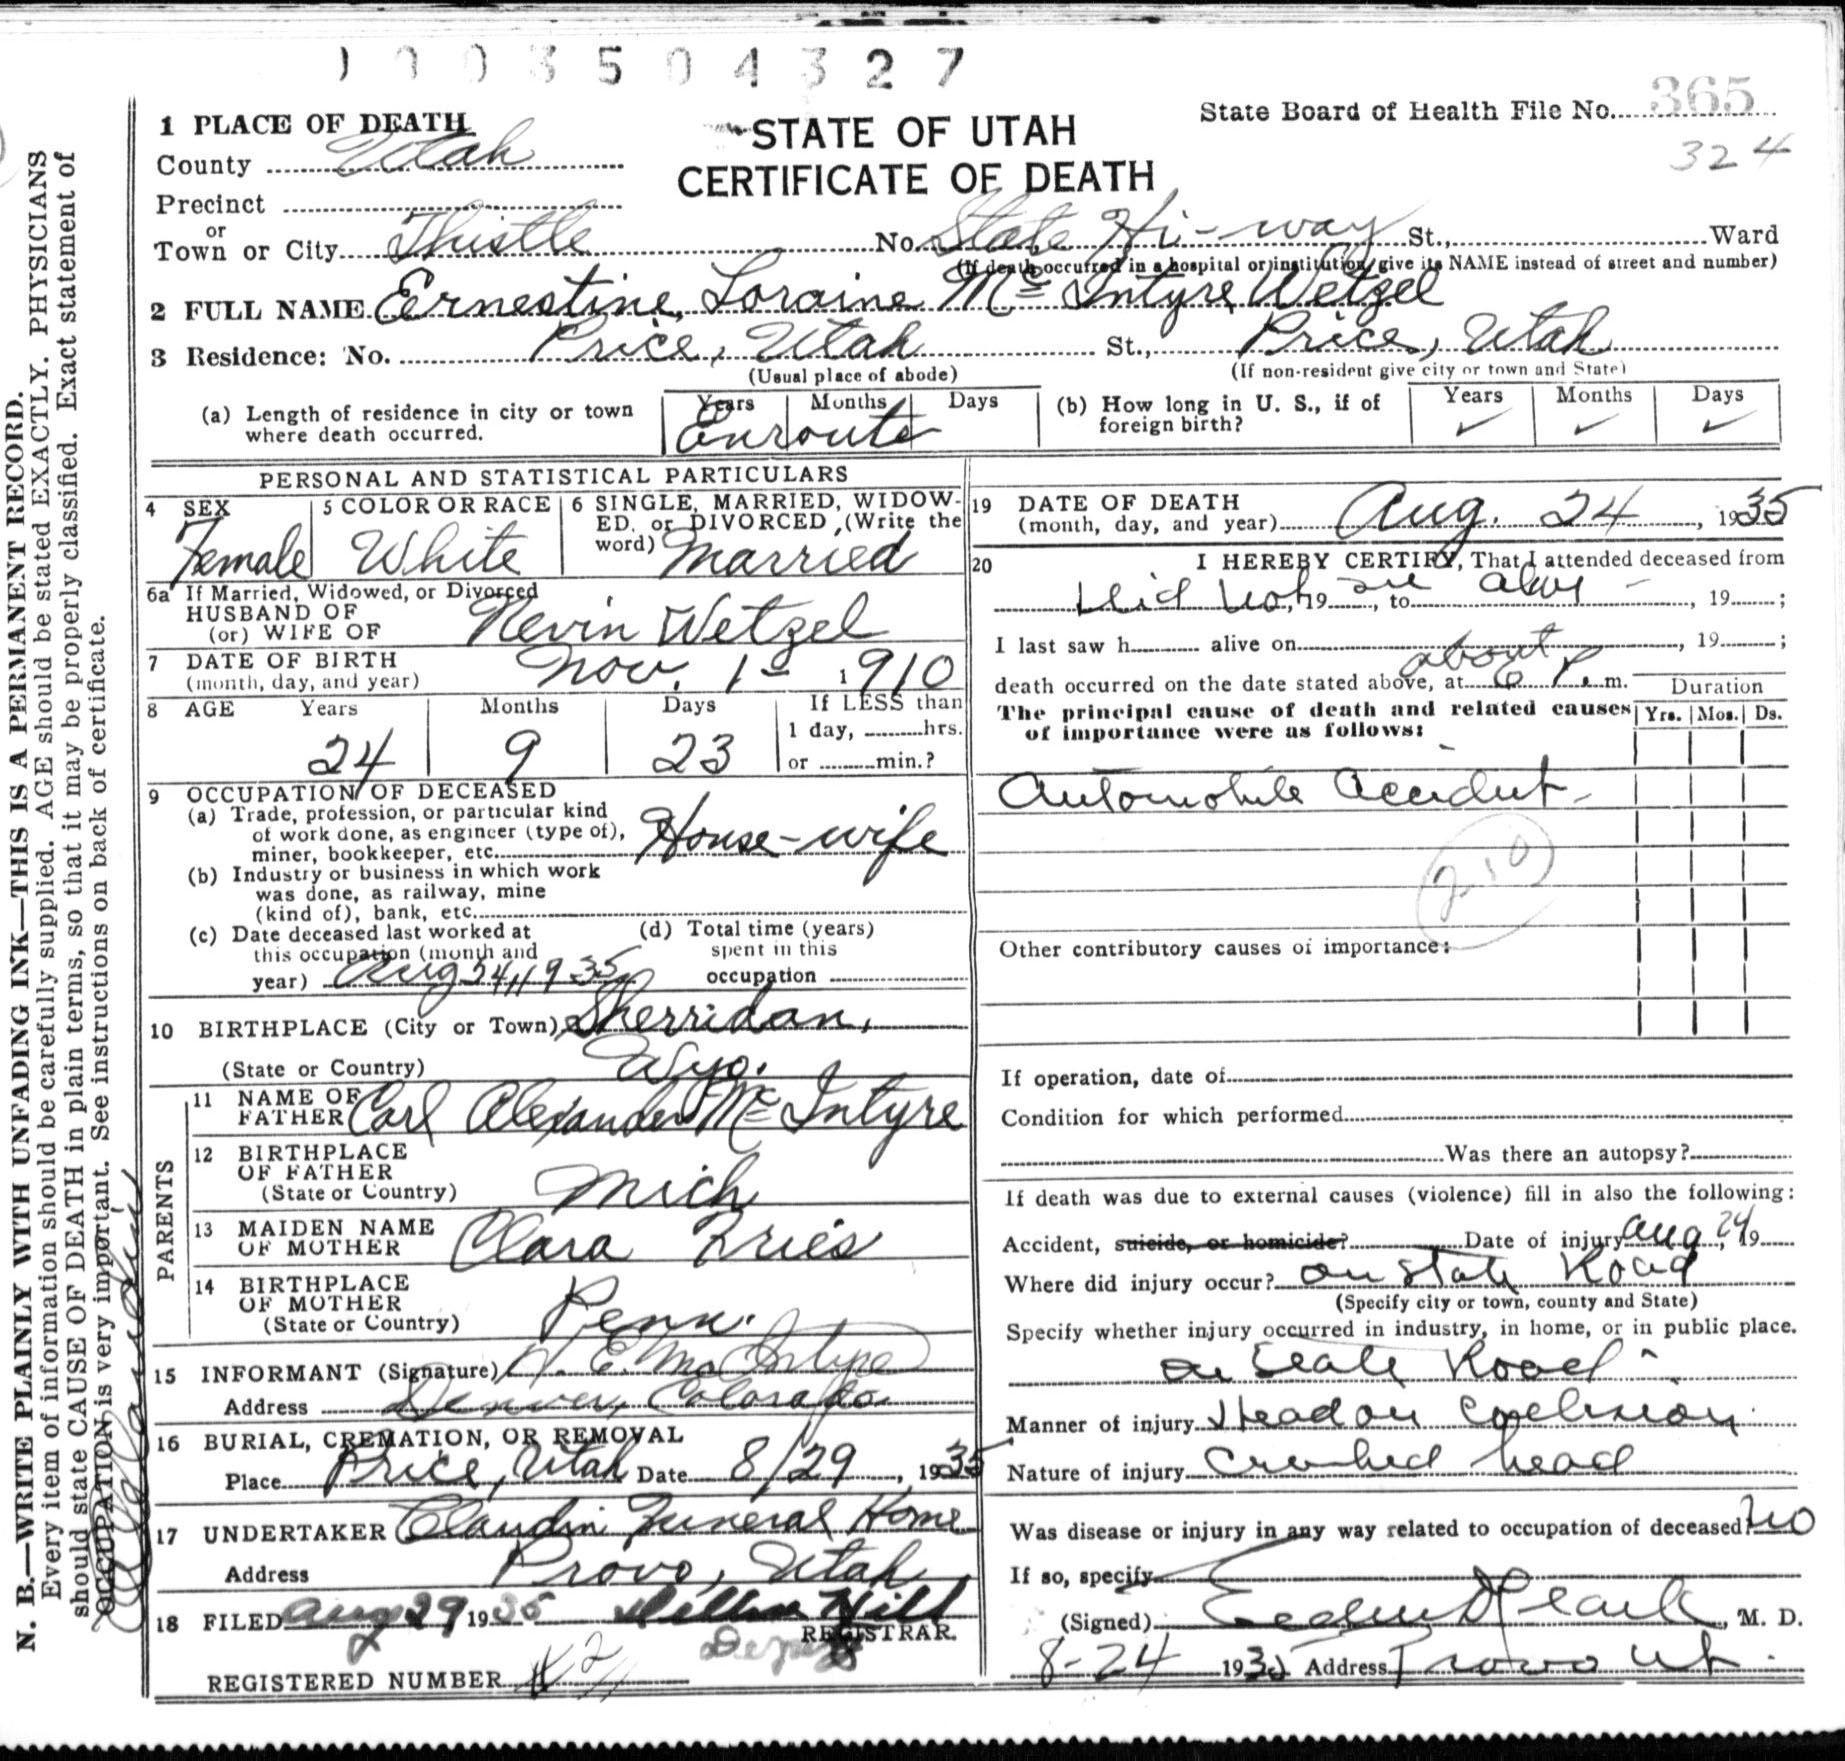 1003504327
1 PLACE OF DEATH
STATE OF UTAH
CERTIFICATE OF DEATH
State Board of Health File No. 365
324
County Utah
Precinct
or
Town or City Thistle No. State Hi-way St., Ward
(If death occurred in a hospital or institution, give its NAME instead of street and number)
2 FULL NAME Ernestine Loraine Mc Intyre Wetzel
3 Residence: No. Price, Utah St., Price, Utah
(Usual place of abode) (If non-resident give city or town and State)
(a) Length of residence in city or town where death occurred. Years Months Days Enroute
(b) How long in U. S., if of foreign birth? Years ✓ Months ✓ Days ✓
PERSONAL AND STATISTICAL PARTICULARS
4 SEX Female
5 COLOR OR RACE White
6 SINGLE, MARRIED, WIDOWED, or DIVORCED (Write the word) Married
6a If Married, Widowed, or Divorced
HUSBAND OF
(or) WIFE OF Nevin Wetzel
7 DATE OF BIRTH
(month, day, and year) Nov. 1- 1910
8 AGE Years 24 Months 9 Days 23 If LESS than
1 day, hrs.
or min.?
9 OCCUPATION OF DECEASED
(a) Trade, profession, or particular kind
of work done, as engineer (type of),
miner, bookkeeper, etc. House-wife
(b) Industry or business in which work
was done, as railway, mine
(kind of), bank, etc.
(c) Date deceased last worked at
this occupation (month and
year) Aug 24, 1935
(d) Total time (years)
spent in this
occupation
10 BIRTHPLACE (City or Town) Sherridan,
(State or Country) Wyo.
PARENTS
11 NAME OF
FATHER Carl Alexander Mc Intyre
12 BIRTHPLACE
OF FATHER
(State or Country) Mich
13 MAIDEN NAME
OF MOTHER Clara Fries
14 BIRTHPLACE
OF MOTHER
(State or Country) Penn.
15 INFORMANT (Signature) E. MacIntyre
Address Denver, Colorado
16 BURIAL, CREMATION, OR REMOVAL
Place Price, Utah Date 8/29, 1935
17 UNDERTAKER Claudin Funeral Home
Address Provo, Utah
18 FILED Aug 29 1935 Hill
REGISTRAR.
Deputy
REGISTERED NUMBER
19 DATE OF DEATH
(month, day, and year) Aug. 24, 1935
20 I HEREBY CERTIFY, That I attended deceased from
Did not, 19 see, to alive -, 19 ;
I last saw h alive on , 19 ;
about
death occurred on the date stated above, at 6 P. m.
Duration
The principal cause of death and related causes
of importance were as follows:
Yrs. Mos. Ds.
Automobile Accident -
210
Other contributory causes of importance:
If operation, date of
Condition for which performed
Was there an autopsy?
If death was due to external causes (violence) fill in also the following:
Accident, suicide, or homicide? Date of injury Aug 24, 19
Where did injury occur? on State Road
(Specify city or town, county and State)
Specify whether injury occurred in industry, in home, or in public place.
on State Road -
Manner of injury Head on Collision
Nature of injury Crushed head
Was disease or injury in any way related to occupation of deceased? no
If so, specify
(Signed) , M. D.
8-24 1935 Address Provo Ut.
N. B.—WRITE PLAINLY WITH UNFADING INK—THIS IS A PERMANENT RECORD.
Every item of information should be carefully supplied. AGE should be stated EXACTLY. PHYSICIANS
should state CAUSE OF DEATH in plain terms, so that it may be properly classified. Exact statement of
OCCUPATION is very important. See instructions on back of certificate.